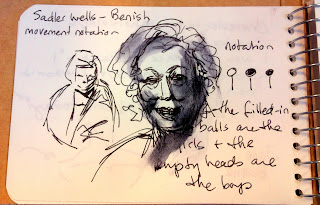 Sadler Wells – Benish
movement notation
notation
+ the filled-in
balls are the
girls + the
empty heads are
the boys